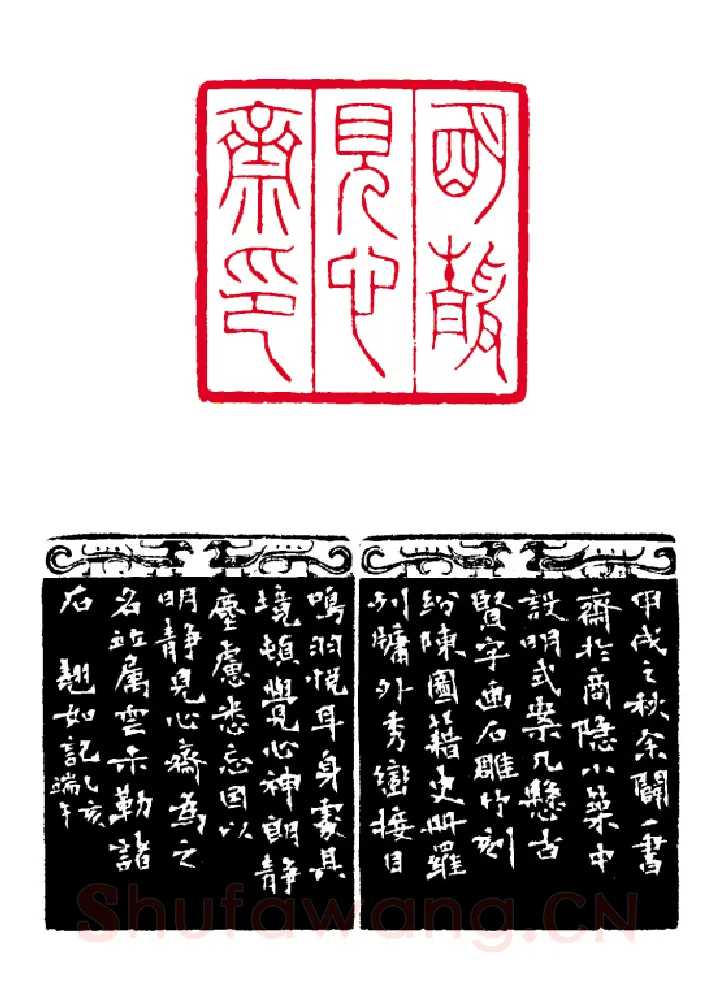 明静
見心
齋印
甲戌之秋余闢一書
齋於商隐小築中
設明式案几懸古
賢字画石雕竹刻
纷陳圖籍史册羅
列牗外秀巒接目
鳴羽悦耳身處其
境頓覺心神朗静
塵慮悉忘因以
明静見心齋為之
名并属雲示勒諸
石 翹如記乙亥
端午
Shufawang.CN